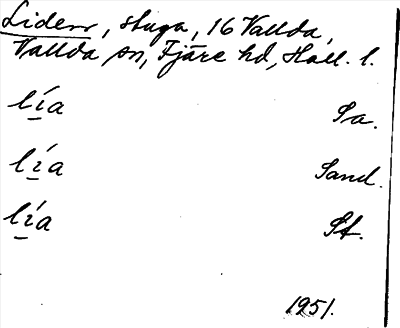 Liden, stuga, 16 Vallda,
Vallda sn, Fjäre hd, Hall. l.
lía Sa.
lía Sand.
lía St.
1951.